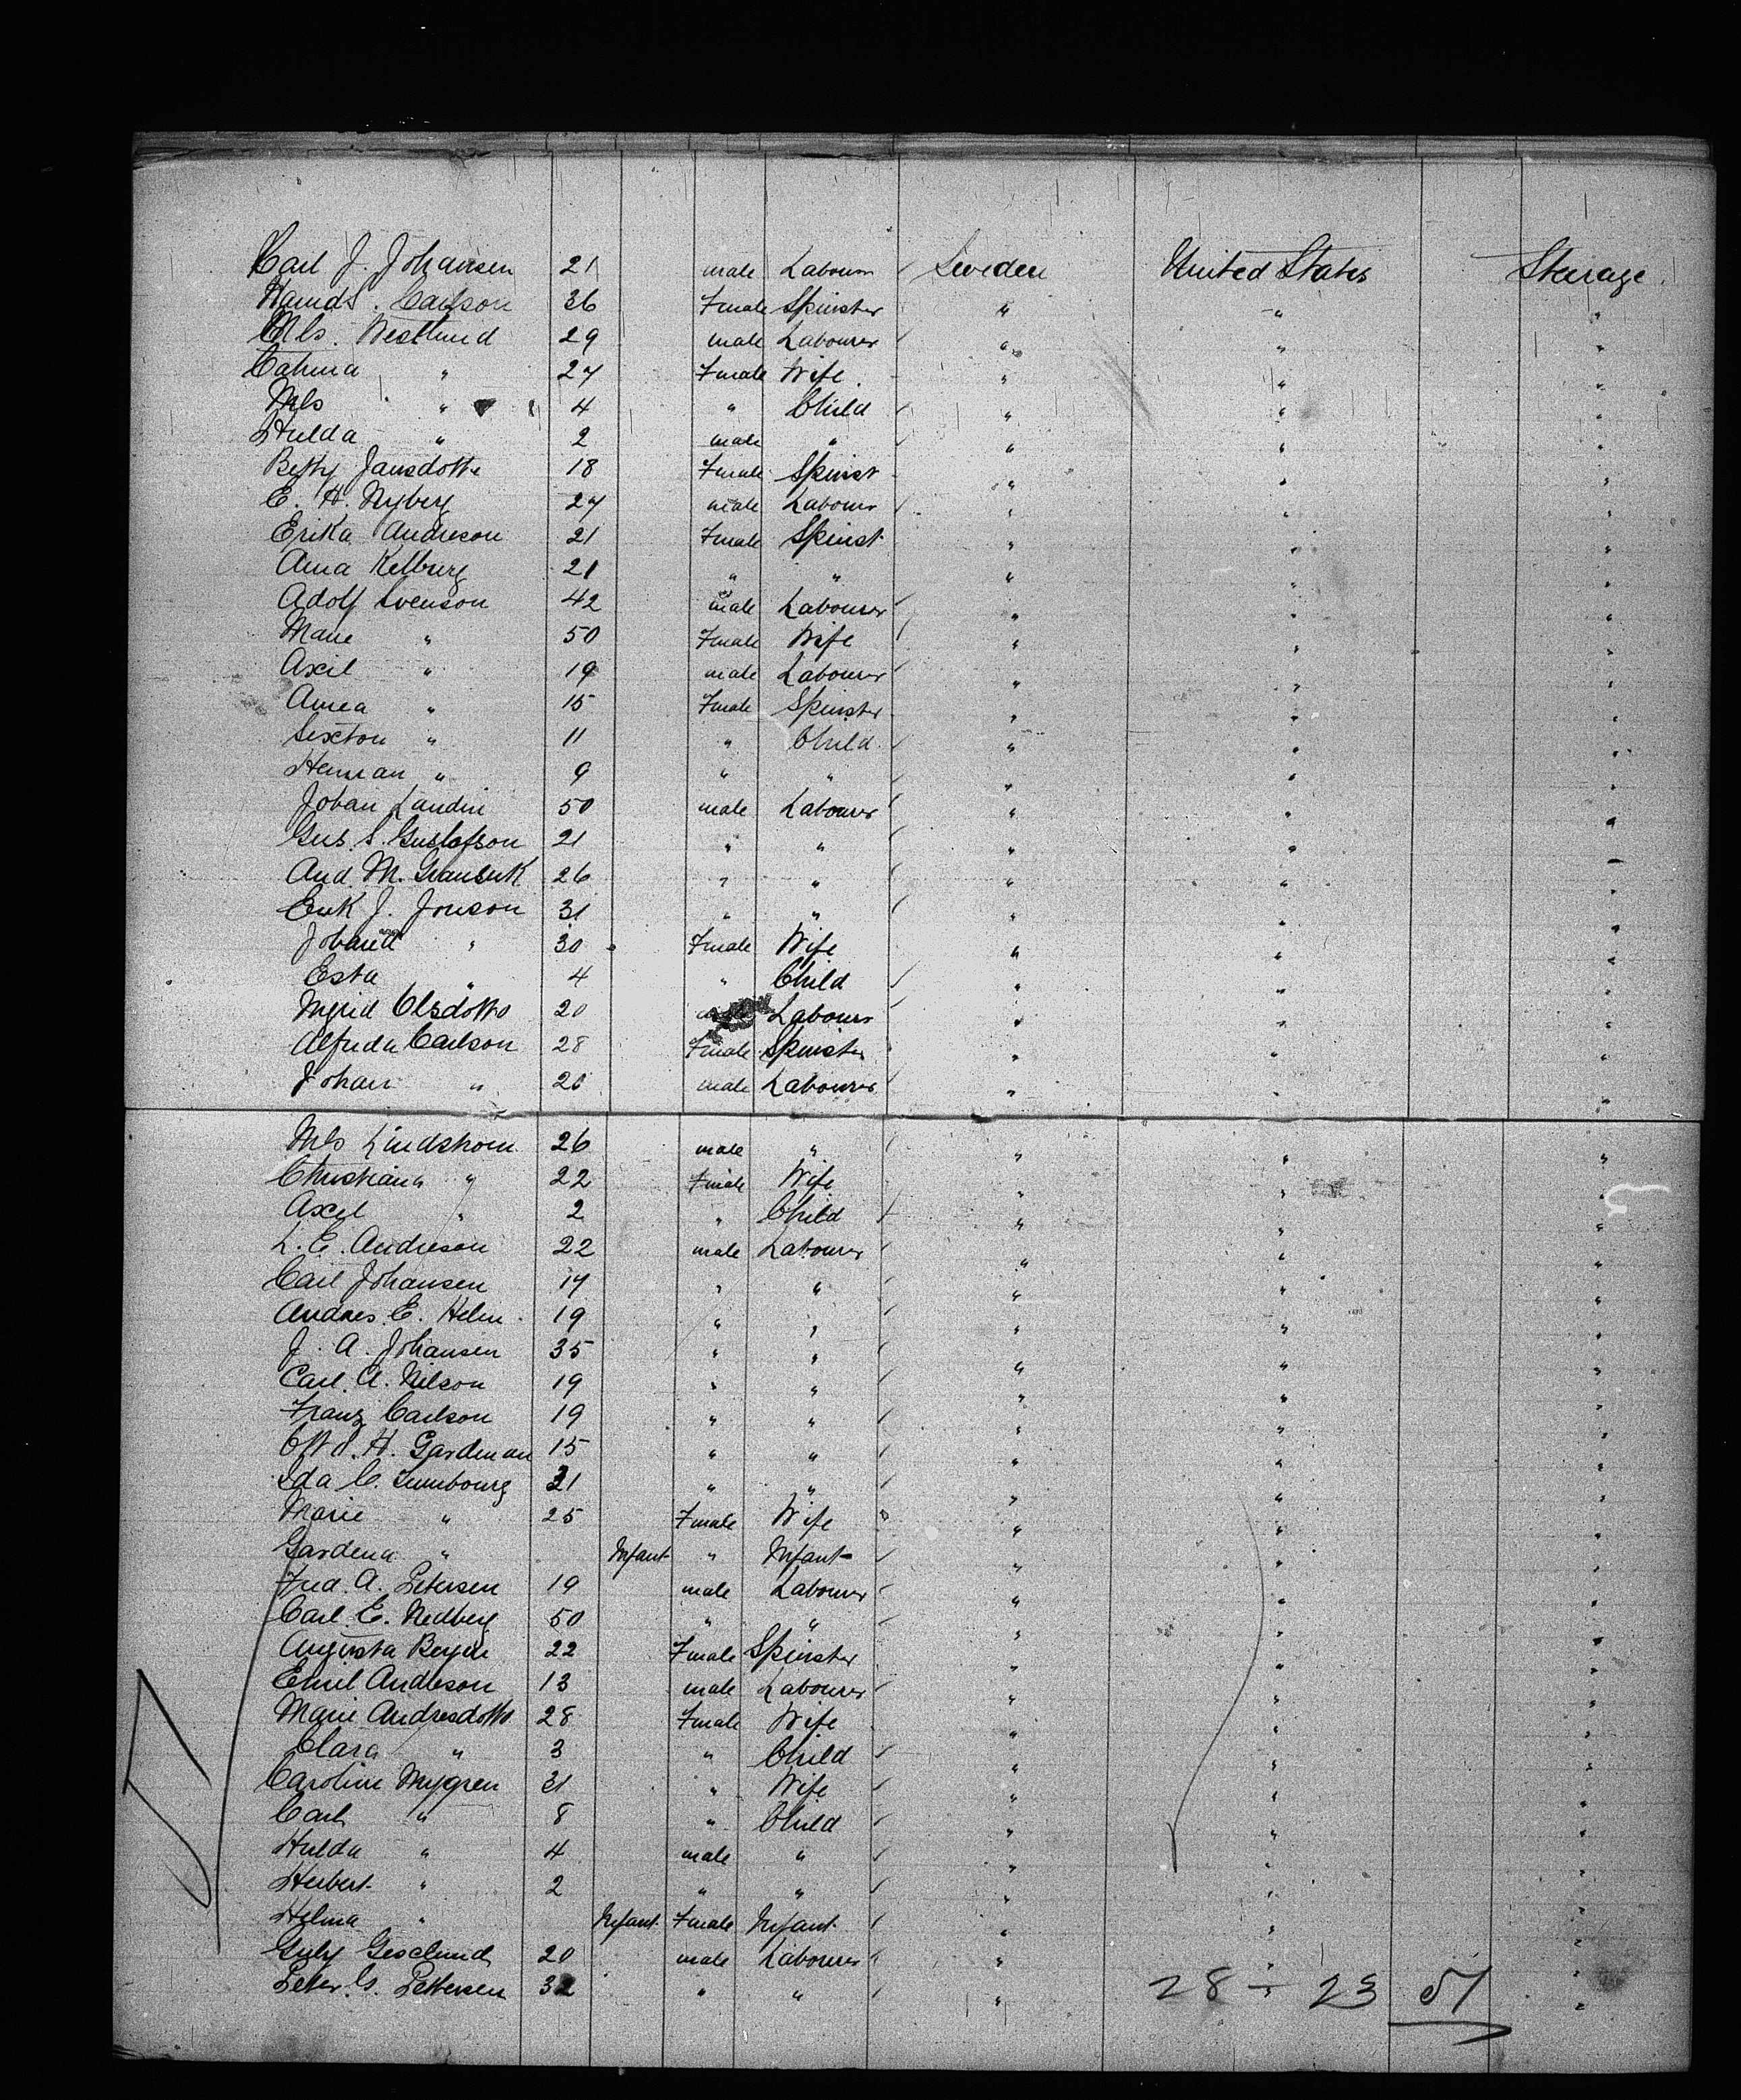 Carl J. Johansen 21 male Labourer Sweden United States Steerage
Carlson 36 Female Spinster " " "
Nils. Westlund 29 male Labourer " " "
" 27 Female Wife. " " "
Nils " 4 " Child " " "
Hulda " 2 male " " " "
Betty Jansdotte 18 Female Spinst " " "
E. H. Nyberg 27 male Labourer " " "
Erika Andreson 21 Female Spinst " " "
Anna 21 " " " " "
Adolf Svenson 42 male Labourer " " "
Marie " 50 Female Wife " " "
Axil " 19 male Labourer " " "
" 15 Female Spinster " " "
Sexton " 11 " Child " " "
Herman " 9 " " " " "
Johan Landin 50 male Labourer " " "
Gus. S. Gustafson 21 " " " " "
And. M. 26 " " " " "
Erik J. Jonson 31 " " " " "
" 30 Female Wife " " "
Esta " 4 " Child " " "
Ingrid Olsdotto 20 Labourer " " "
Alfreda Carlson 28 Female Spinster " " "
Johan " 20 male Labourer " " "
Nils Lindstrom 26 male " " " "
Christiana " 22 Female Wife " " "
Axel " 2 " Child " " "
L. E. Andreson 22 male Labourer " " "
Carl Johansen 17 " " " " "
Andres. E. Helm 19 " " " " "
J. A. Johansen 35 " " " " "
Carl. A. Nilson 19 " " " " "
Franz Carlson 19 " " " " "
H. Gardeman 15 " " " " "
Ida C. 31 " " " " "
Marie " 25 Female Wife " " "
Gardena " Infant " Infant " " "
Fred. A. Petersen 19 male Labourer " " "
Carl. E. Nedberg 50 " " " " "
Augusta 22 Female Spinster " " "
Emil Andreson 13 male Labourer " " "
Marie Andresdotto 28 Female Wife " " "
Clara " 3 " Child " " "
Caroline Nygren 31 " Wife " " "
Carl " 8 " Child " " "
Hulda " 4 male " " " "
Herbert " 2 " " " " "
Helma " Infant Female Infant " " "
20 male Labourer " " "
Peter. G. Pettersen 32 " " " " "
28 - 23 51